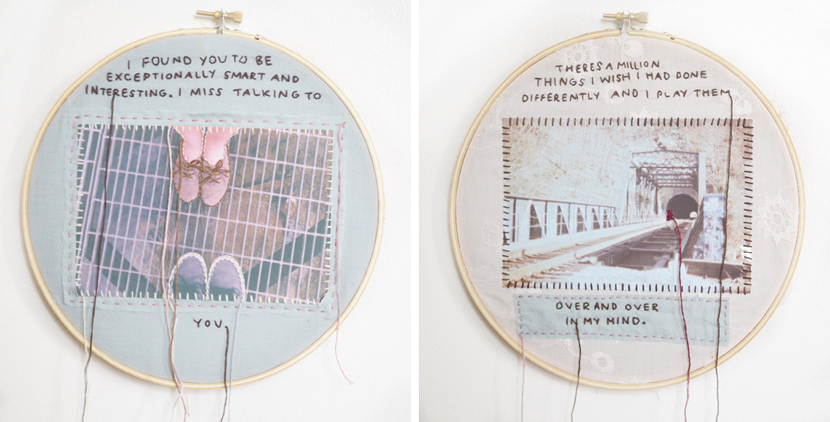 I FOUND YOU TO BE
EXCEPTIONALLY SMART AND
INTERESTING. I MISS TALKING TO
YOU.
THERES A MILLION
THINGS I WISH I HAD DONE
DIFFERENTLY AND I PLAY THEM
OVER AND OVER
IN MY MIND.